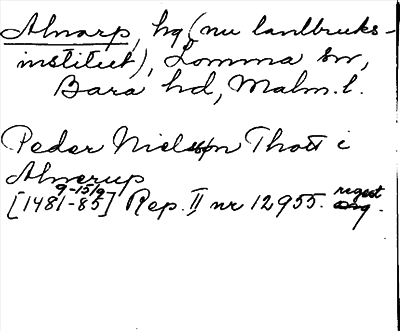 Alnarp, hg (nu lantbruks-
institut), Lomma sn,
Bara hd, Malm. l.
Peder Nielsson Thott i
Alnerup
9-15/9 regest
[1481-85] Rep. II nr 12955.